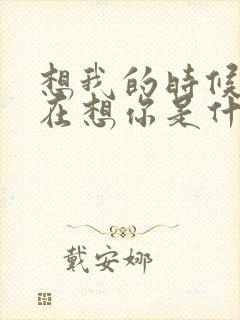 想我的時候
在想你是什
戴安娜